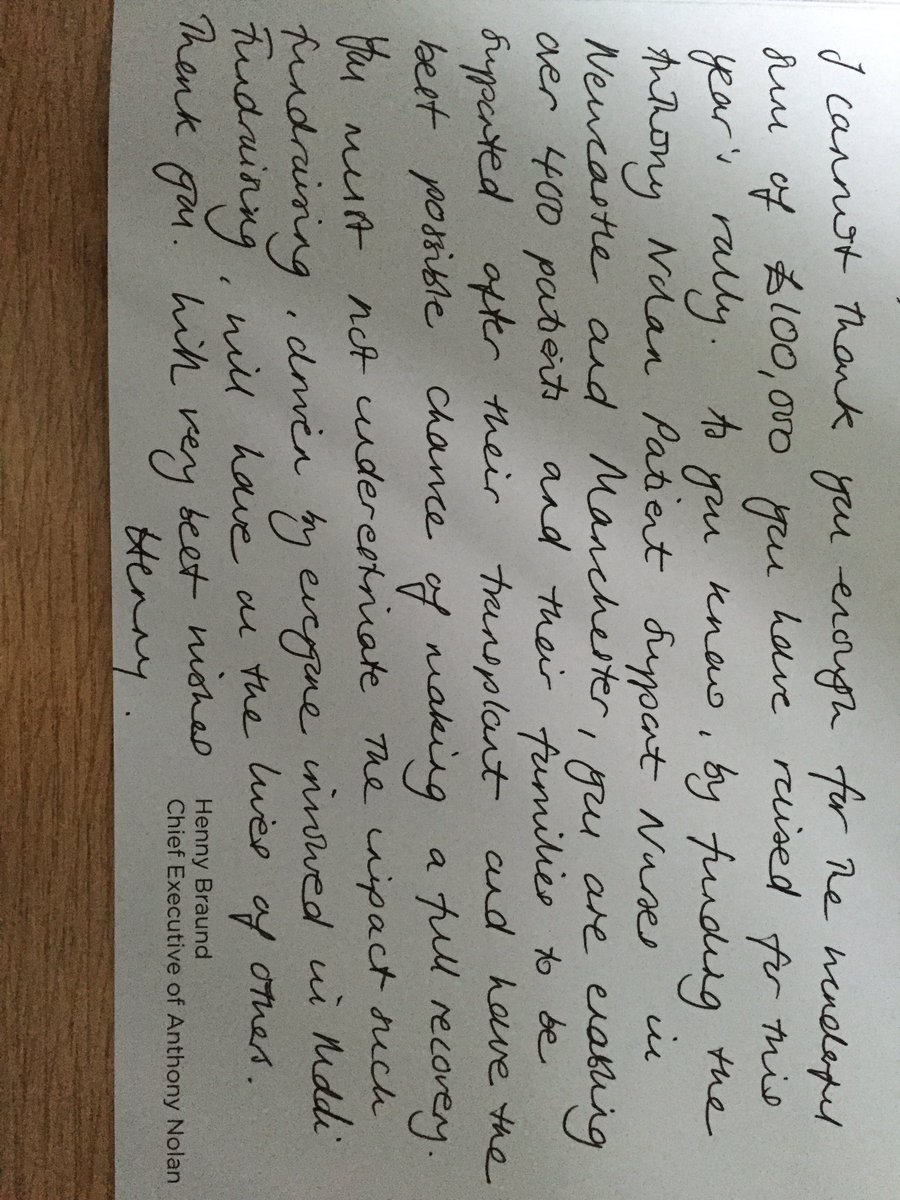 I cannot thank you enough for the wonderful
sum of £100,000 you have raised for this
year's rally. As you know, by funding the
Anthony Nolan Patient Support Nurses in
Newcastle and Manchester, you are enabling
over 400 patients and their families to be
supported after their transplant and have the
best possible chance of making a full recovery.
You must not underestimate the impact such
fundraising, driven by everyone involved in
fundraising, will have on the lives of others.
Thank you. With very best wishes
Henny.
Henny Braund
Chief Executive of Anthony Nolan